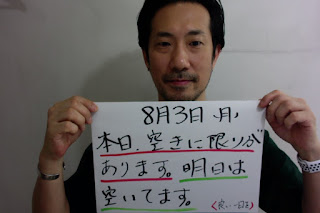 8月3日(月)
本日、空きに限りが
あります。明日は
空いてます。